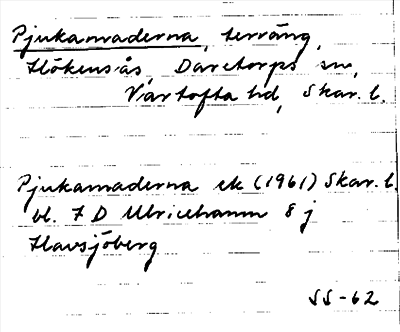 Pjukamaderna, terräng,
Hökensås, Daretorps sn,
Vartofta hd, Skar. l.
Pjukamaderna ek (1961) Skar. l.
bl. 7 D Ulricehamn 8 j
Havsjöberg
SS-62